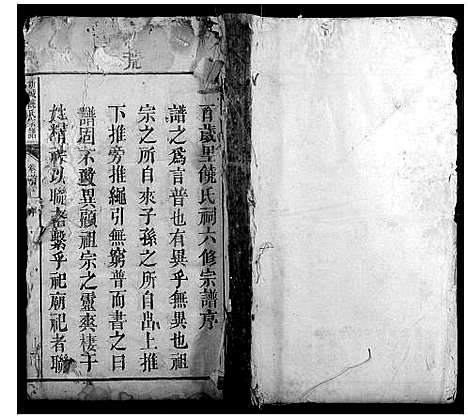 百歲里饒氏祠六修宗譜序
譜之爲言普也有異乎無異也祖
宗之所自來子孫之所自出上推
下推旁推繩引無窮普而書之曰
譜固不敢異顧祖宗之靈爽棲于
姓精禋以聯者繫乎祀廟祀者聯
氏宗譜